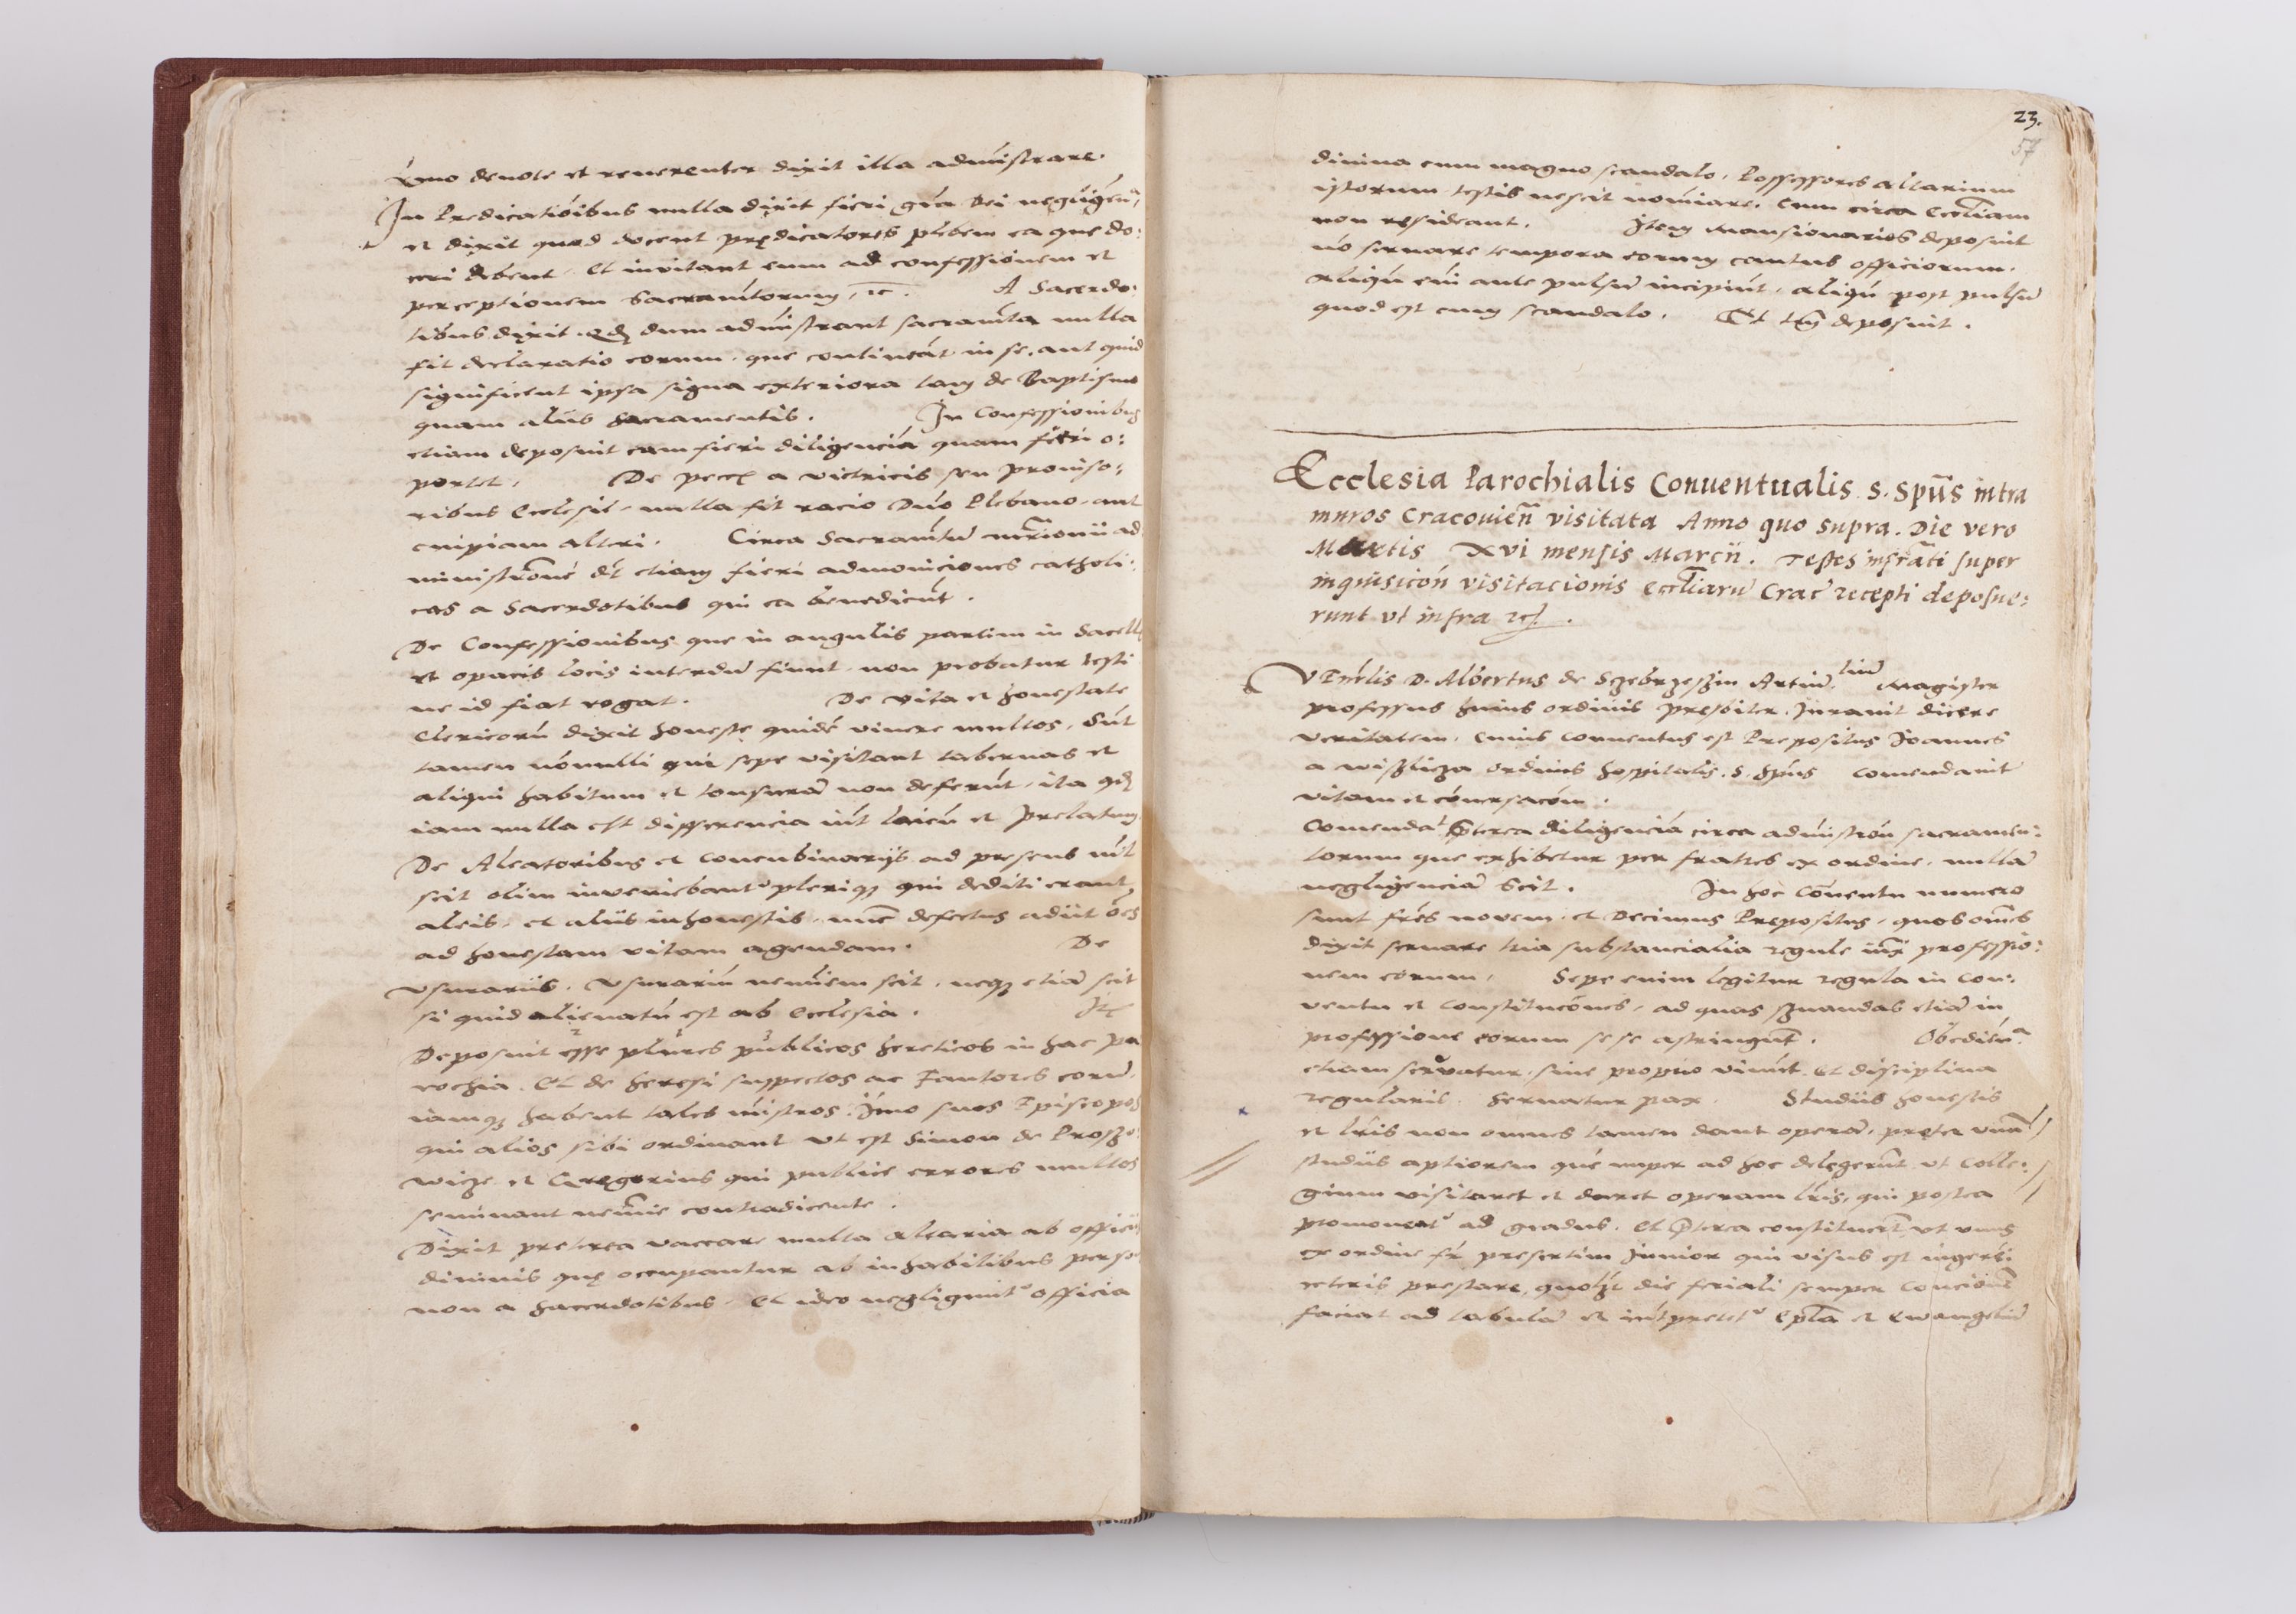 Imo deuote et reuerenter dixit illa admĩstrare.
In Predicatiõibus nulla dixit fieri gr̃a Dei negligẽn̄,
et dixit quod docent prędicatores plebem ea que do:
ceri debent. Et inuitant eum ad confessionem et
perceptionem Sacram̃torum, ⁊c. A Sacerdo:
tibus dixit. Qđ dum admĩstrant sacram̃ta nulla
fit declaratio eorum, que contineãt in se, aut quid
significent ipsa signa exteriora tam de Baptismo
quam alijs Sacramentis. In Confessionibus
etiam deposuit eam fieri diligenciã quam fieri o:
portet. De a victricis seu prouiso:
ribus Ecclesię nulla fit racio Dño Plebano, aut
cuipiam alteri. Circa Sacram̃tũ mr̃imonii ad
ministrõne dẽt etiam fieri admoniciones catholi:
cas a Sacerdotibus qui ea benedicũt.
De Confessionibus que in angulis partim in Sacell
et opacis locis interdũ fiunt, non probatur testi
ne id fiat rogat. De vita et honestate
Clericorũ dixit honeste quidẽ viuere multos, Sũt
tamen nõnulli qui sepe visitant tabernas et
aliqui habitum et tonsurã non deferũt, ita qđ
iam nulla est differencia iñt laicũ et prelatum
De Aleatoribus et concubinarijs ad presens nil
scit olim inveniebant᷑ pleriqꝫ qui dediti erant
aleis, et alijs inhonestis, nũc defectus adiit õẽs
ad honestam vitam agendam. De
vsurarijs. Vsurariũ neminem scit, neqꝫ etiã scit
si quid alienatũ est ab Ecclesia. Itẽ
Deposuit esse plures publicos hereticos in hac pa
rochia. Et de heresi suspectos ac Fautores eorũ.
iamqꝫ habent tales mĩstros. Imo suos Episcopos
qui alios sibi ordinant vt est Simon de Proszo
wicze et Gregorius qui publice errores multos
seminant nemĩe contradicente.
Dixit preterea vaccare multa altaria ab officijs
diuinis quę occupantur ab inhabilibus perso
non a sacerdotibus. Et ideo negligunt᷑ officia
23.
57
diuina cum magno scandalo. Possessores altarium
istorum testis nescit nomĩare. Cum circa Ecc̃liam
non resideant. Item Mansionarios deposuit
nõ seruare tempora eorum cantus officiorum.
Aliqñ eñi ante pulsũ incipiũt, aliqñ post pulsũ
quod est cum scandalo. Et tm̃ deposuit.
Ecclesia Parochialis Conuentualis S. Spũs intra
muros Cracouieñ visitata Anno quo supra. Die vero
Martis Xvi mensis Marcii. Testes infrãti super
inquisicõn visitacionis Eccliarũ Crac̃ recepti deposue:
runt vt infra ⁊c̃.
VEnẽlis D. Albertus de Szebrzeszin Artiũ liũ Magister
professus huius ordinis presbiter. Iurauit dicere
veritatem, cuius conuentus est Prepositus Ioannes
a wislicza ordinis hospitalis. S. Spũs Comendauit
vitam et cõuersacõm.
Comendat pterea diligenciã circa admĩstrõn sacramen:
torum que exhibetur per fratres ex ordine, nullã
negligenciã Scit. In hoc Cõuentu numero
sunt fr̃es nouem et Decimus Prepositus, quos om̃es
dixit seruare tria substancialia regule iux̃ professio:
nem eorum. Sepe enim legitur regula in Con:
uentu et Constitucões, ad quas seruandas etiã in
professione eorum sese astringunt. Obediẽn̄
etiam seruatur, sine proprio viuũt et disciplina
regularis. Seruatur pax. Studijs honestis
et lr̃is non omnes tamen dant operã, preter vnũ
studijs aptiorem quẽ nuper ad hoc delegerũt vt Colle:
gium visitaret et daret operam lr̃is, qui postea
promoueat᷑ ad gradus. Et pterea constituer̃t vt vnus
ex ordine fr̃ presertim Iunior qui visus est ingerĩ
ceteris prestare, quolꝫt die feriali semper concionẽ
faciat ad tabulã et iñtpretet᷑ Epl̃a et Ewangeliũ